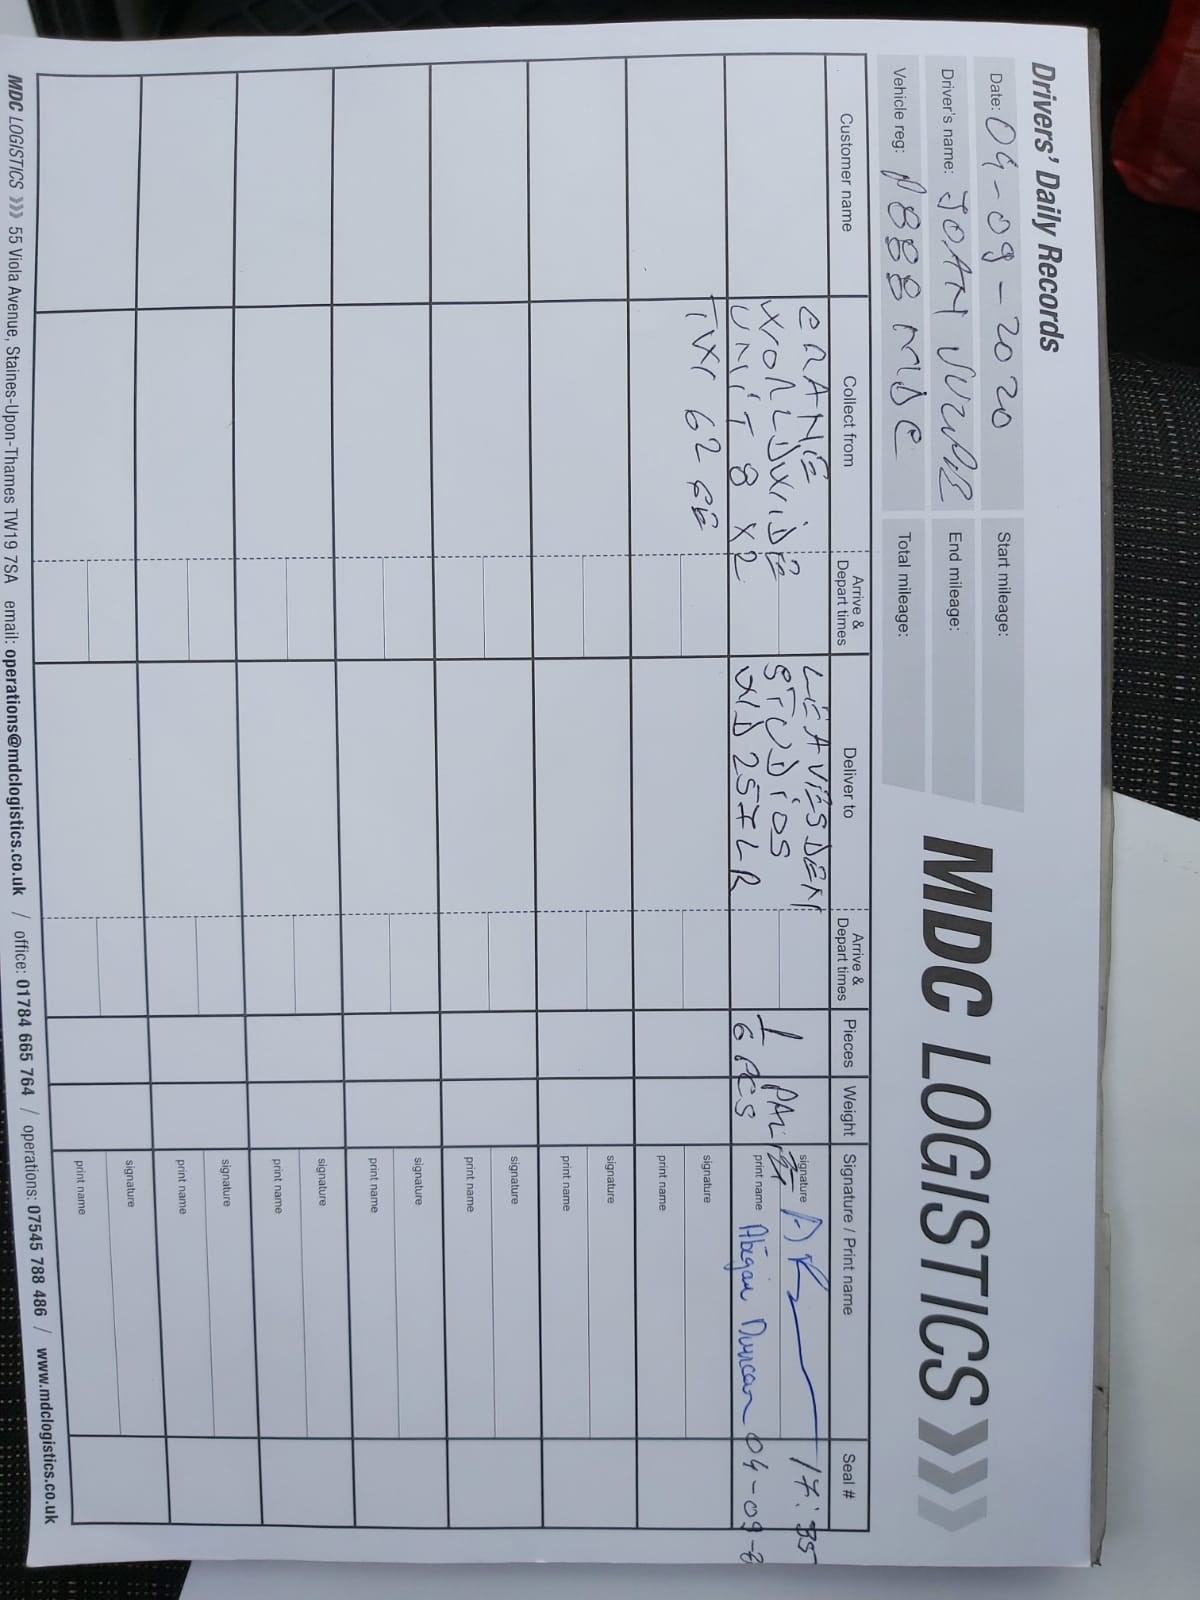 Drivers' Daily Records
MDC LOGISTICS
Date: 04-09-2020
Start mileage:
Driver's name: JOAN
End mileage:
Vehicle reg: P888 MDC
Total mileage:
Customer name
Collect from
Arrive & Depart times
Deliver to
Arrive & Depart times
Pieces
Weight
Signature / Print name
Seal #
CRANE
WORLDWIDE
UNIT 8 X2
TW 62 GE
LEAVESDEN
STUDIOS
WD257LR
1 PAL
6 PCS
signature
17:35
print name Abigail Duncan 04-09-2
signature
print name
signature
print name
signature
print name
signature
print name
signature
print name
signature
print name
signature
print name
MDC LOGISTICS >>> 55 Viola Avenue, Staines-Upon-Thames TW19 7SA email: operations@mdclogistics.co.uk / office: 01784 665 764 / operations: 07545 788 486 / www.mdclogistics.co.uk